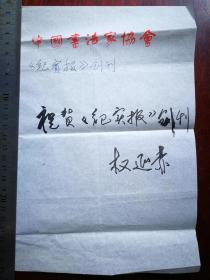 中國書法家協會
《纪实报》创刊
祝贺《纪实报》创刊
权延赤